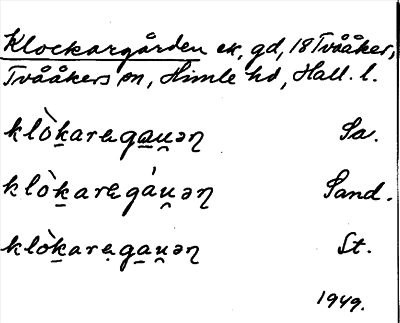 Klockargården ek. gd, 18 Tvååker,
Tvååkers sn, Himle hd, Hall. l.
klòkaregau̯əɳ Sa.
klòkaregáu̯əɳ Sand.
klòkaregau̯əɳ St.
1949.